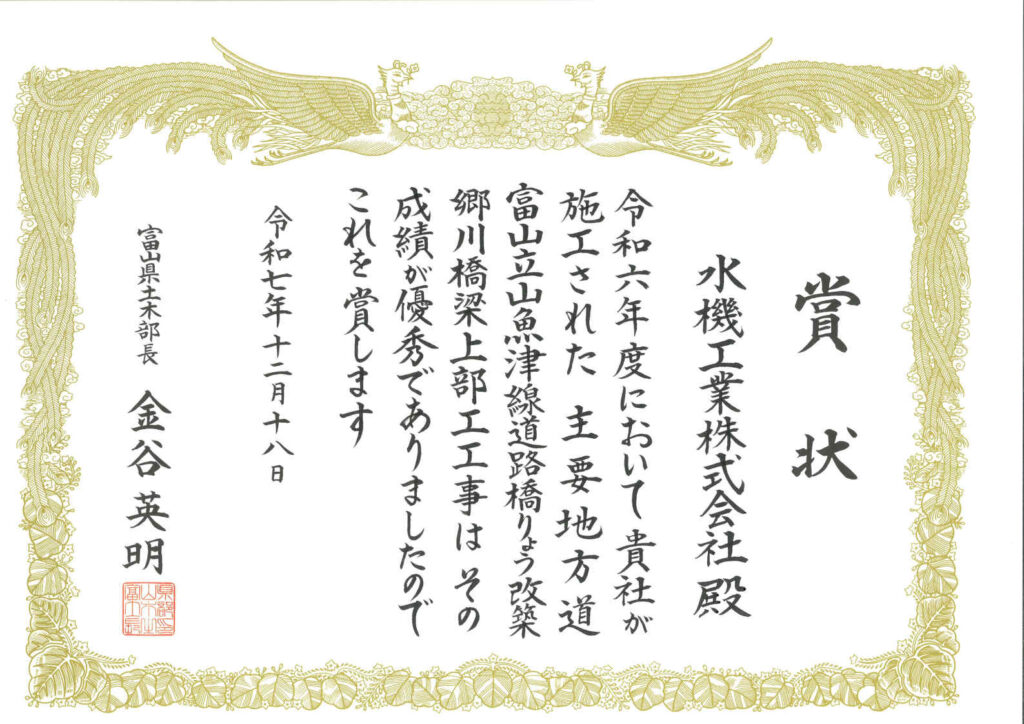 賞状
水機工業株式会社殿
令和六年度において貴社が
施工された 主要地方道
富山立山魚津線道路橋りょう改築
郷川橋梁上部工工事は その
成績が優秀でありましたので
これを賞します
令和七年十二月十八日
富山県土木部長 金谷英明